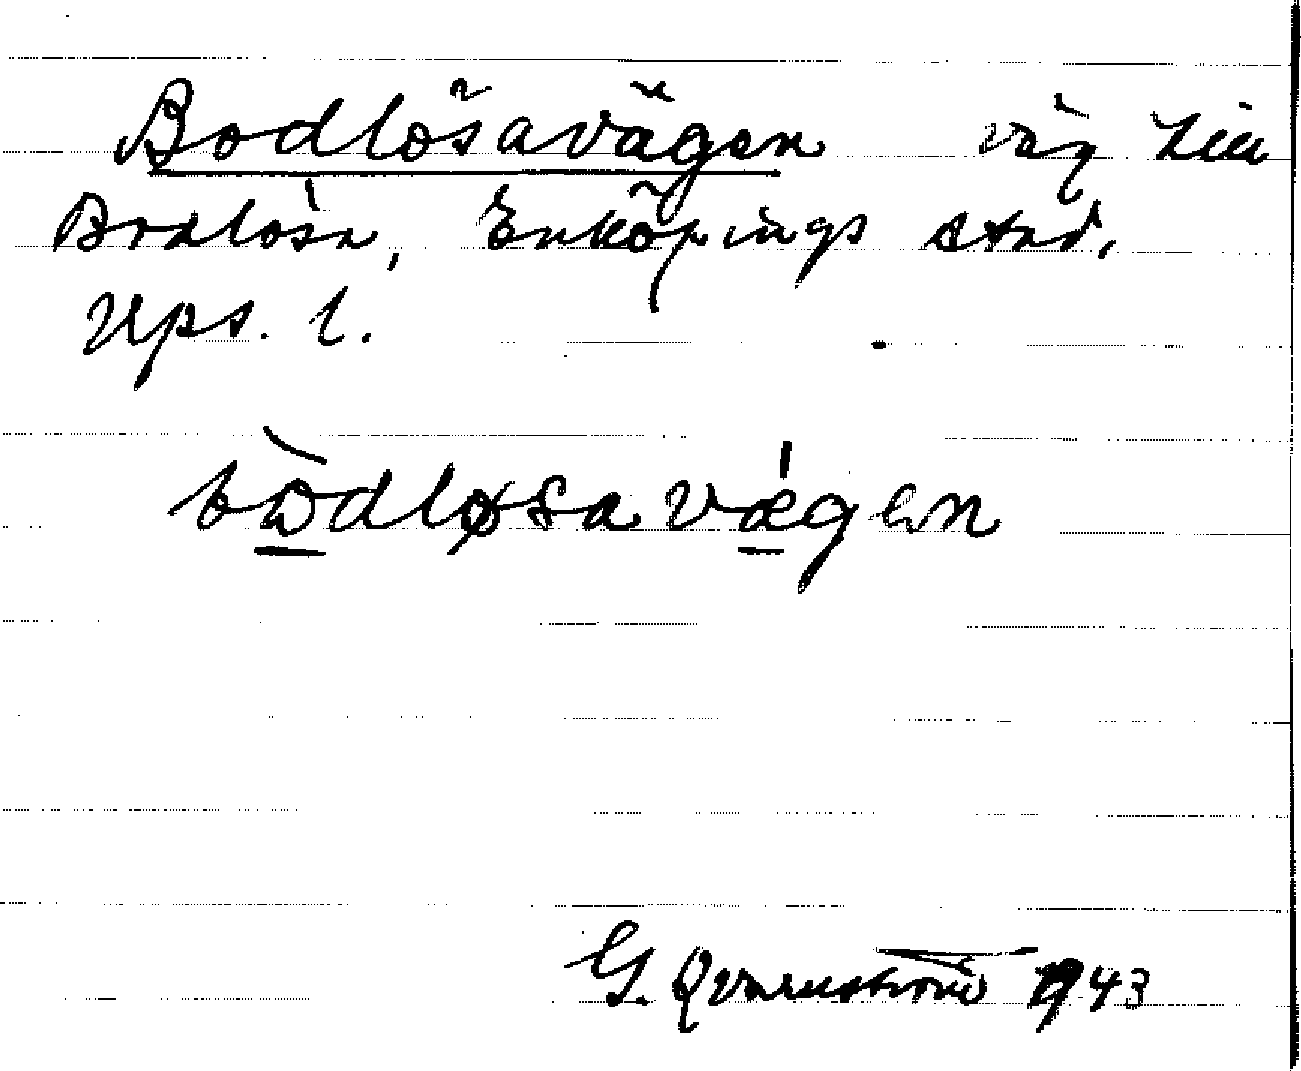 Bodlösavägen väg till
Bodlösa, Enköpings stad,
Ups. l.
bò̲dløsavǽ̲gen
G. Qvarnström 1943